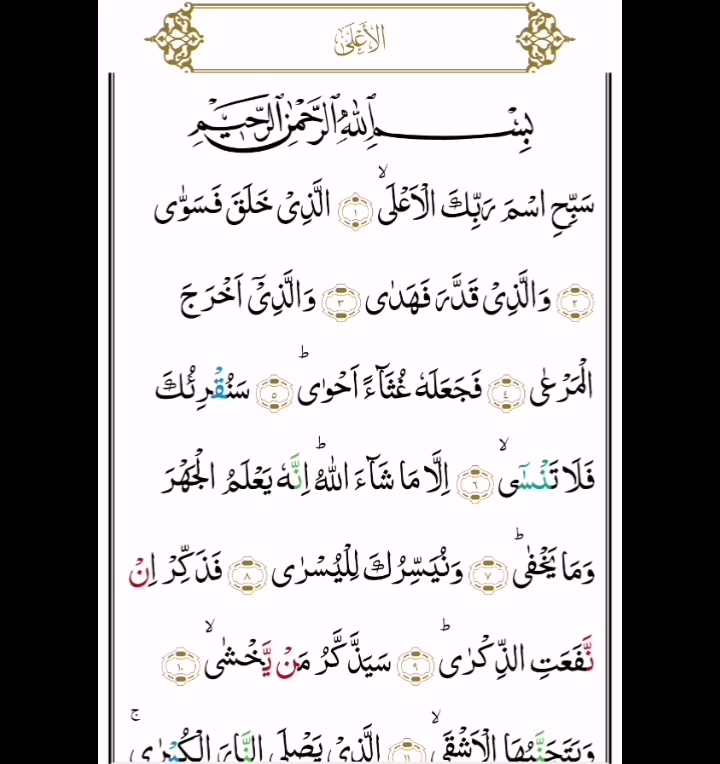 الأعلى
بِسْمِ اللهِ الرَّحْمٰنِ الرَّحِيْمِ
سَبِّحِ اسْمَ رَبِّكَ الْاَعْلَىۙ ١ الَّذِيْ خَلَقَ فَسَوّٰى
٢ وَالَّذِيْ قَدَّرَ فَهَدٰى ٣ وَالَّذِيْٓ اَخْرَجَ
الْمَرْعٰى ٤ فَجَعَلَهٗ غُثَآءً اَحْوٰىؕ ٥ سَنُقْرِئُكَ
فَلَا تَنْسٰٓىۙ ٦ اِلَّا مَا شَآءَ اللّٰهُؕ اِنَّهٗ يَعْلَمُ الْجَهْرَ
وَمَا يَخْفٰىؕ ٧ وَنُيَسِّرُكَ لِلْيُسْرٰى ٨ فَذَكِّرْ اِنْ
نَّفَعَتِ الذِّكْرٰىؕ ٩ سَيَذَّكَّرُ مَنْ يَّخْشٰىۙ ١٠
وَيَتَجَنَّبُهَا الْاَشْقَىۙ ١١ الَّذِيْ يَصْلَى النَّارَ الْكُبْرٰىۚ